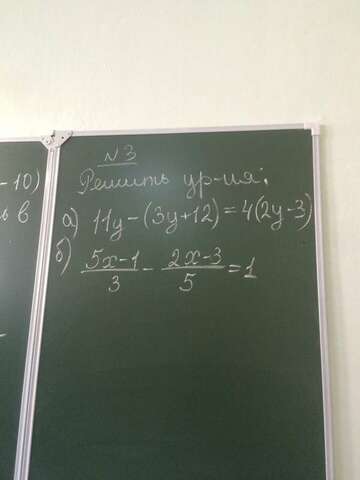 - 10)
ь в
№3
Решить ур-ия:
а) 11y-(3y+12)=4(2y-3)
б) \frac{5x-1}{3} - \frac{2x-3}{5} = 1